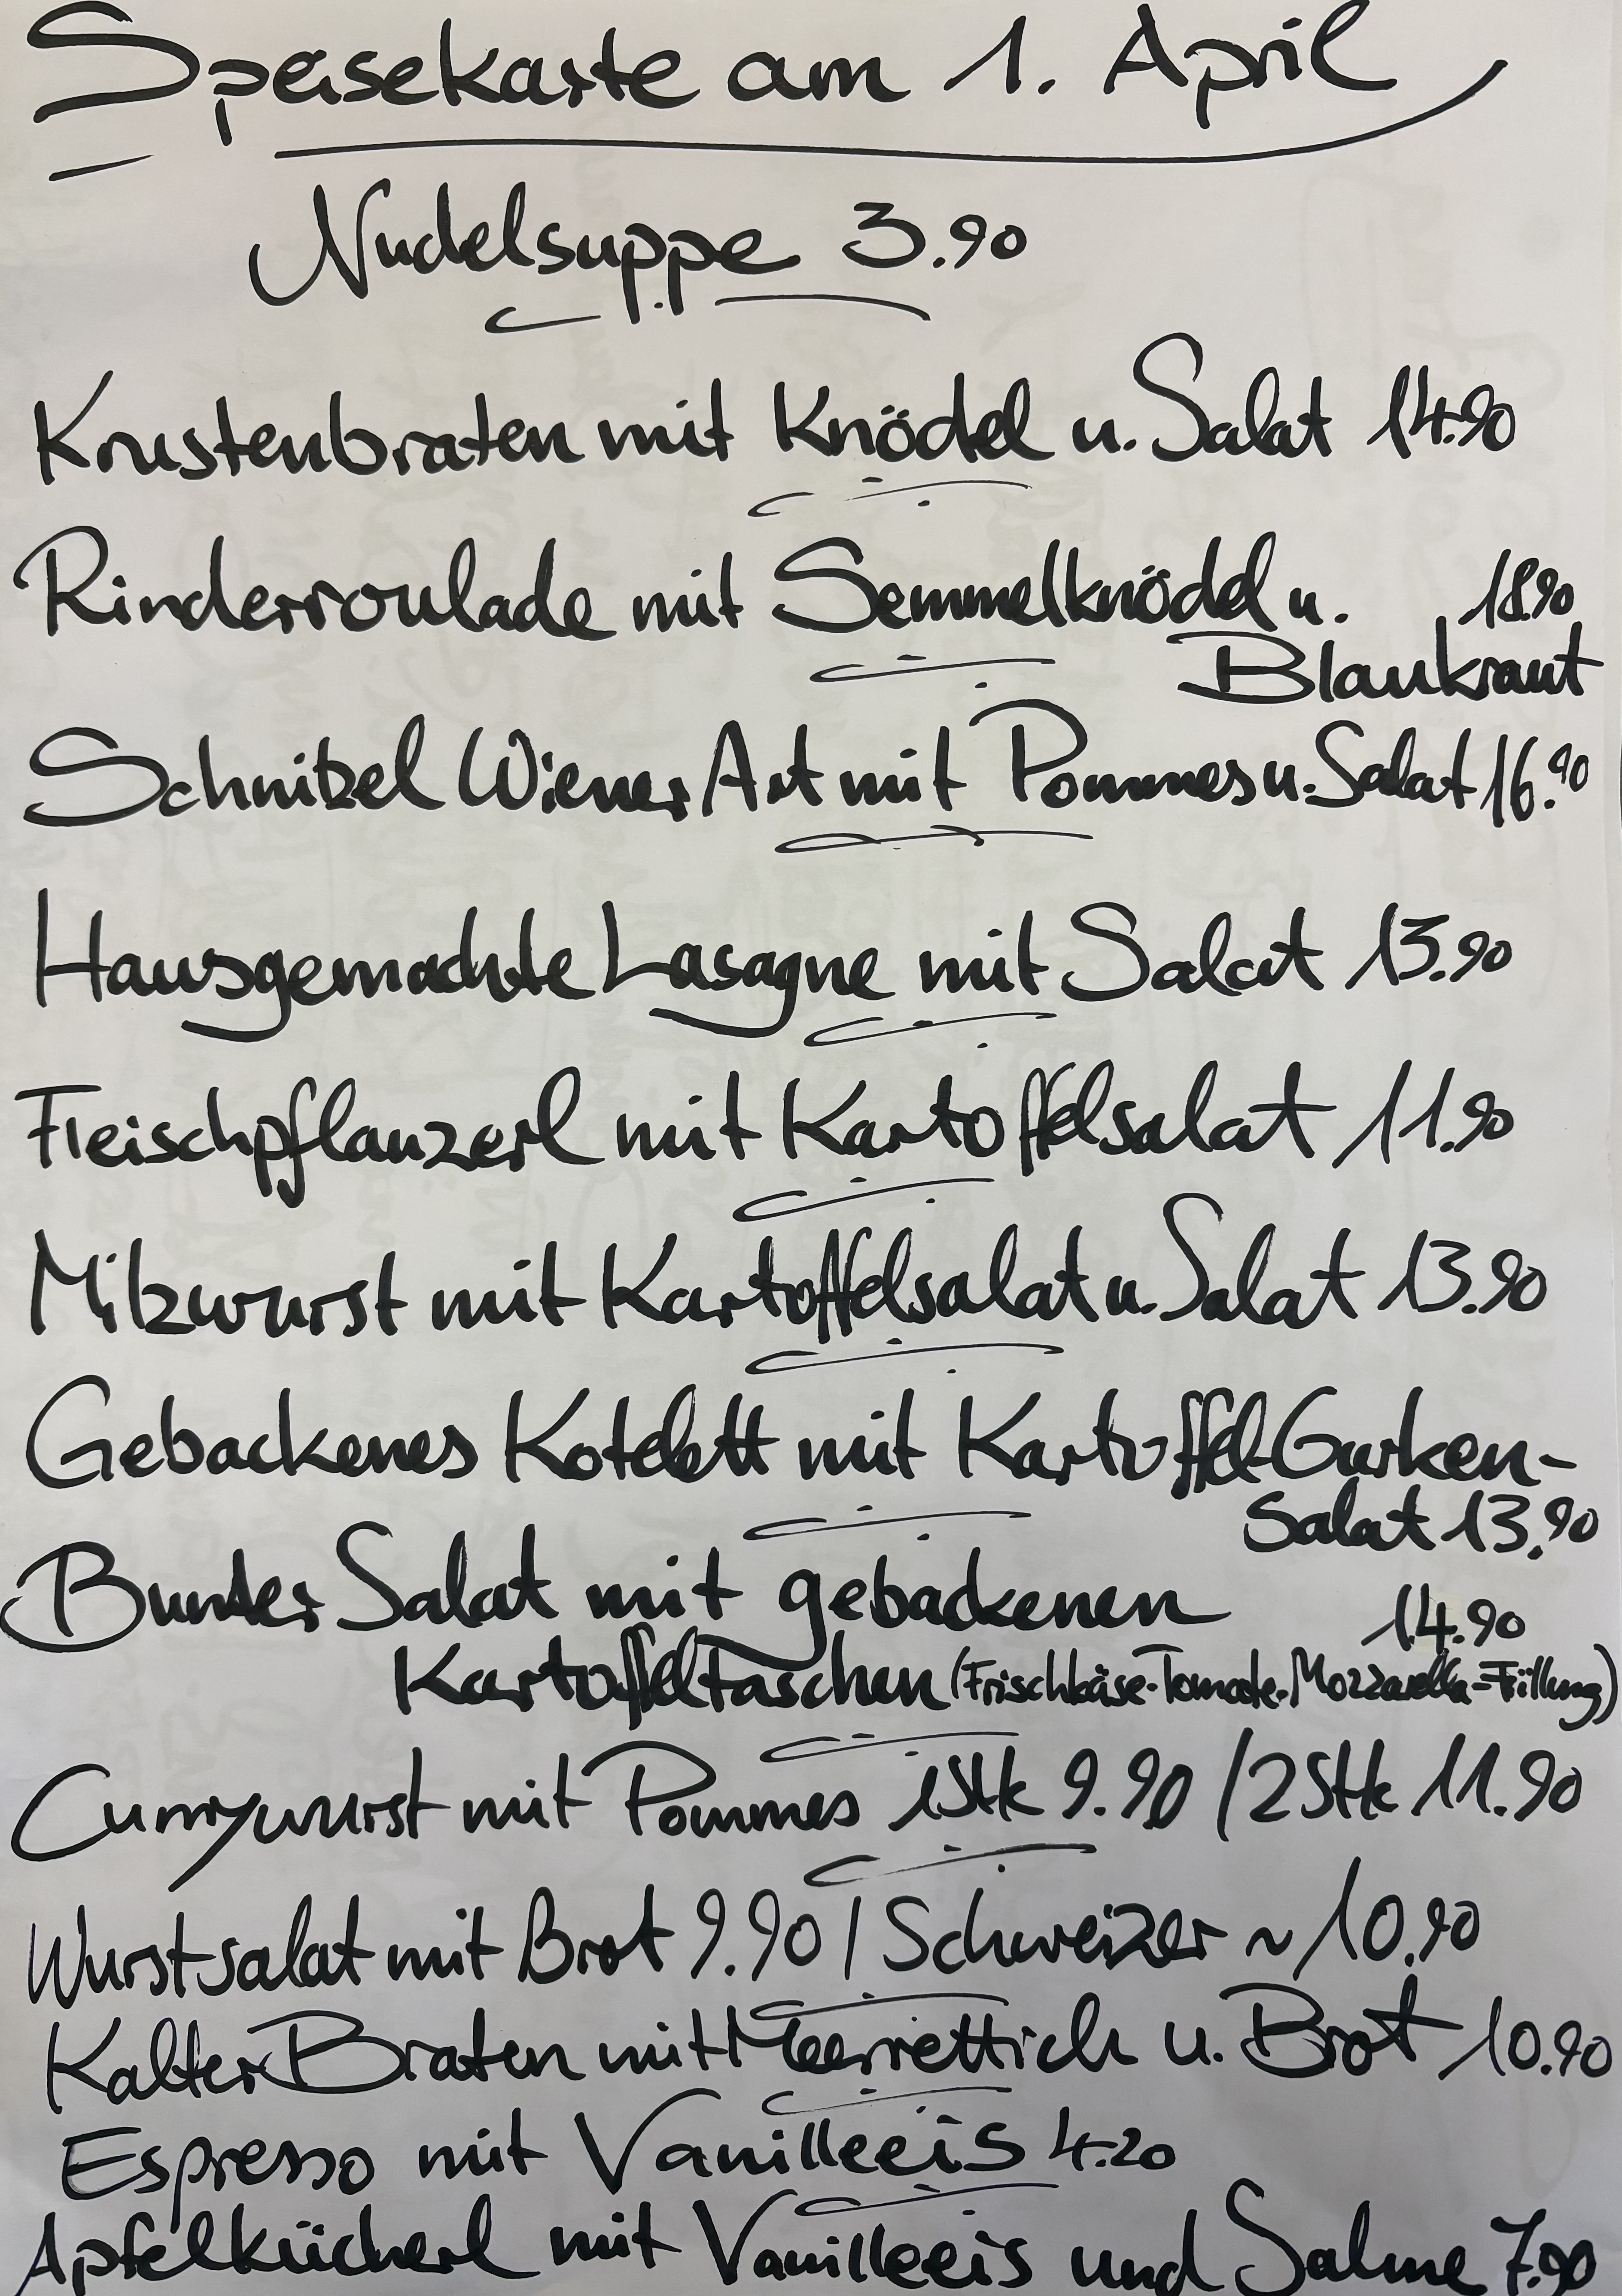 Speisekarte am 1. April
Nudelsuppe 3.90
Krustenbraten mit Knödel u. Salat 14.90
Rinderroulade mit Semmelknödel u. 18.90
Blaukraut
Schnitzel Wiener Art mit Pommes u. Salat 16.90
Hausgemachte Lasagne mit Salat 13.90
Fleischpflanzerl mit Kartoffelsalat 11.90
Milzwurst mit Kartoffelsalat u. Salat 13.90
Gebackenes Kotelett mit Kartoffel-Gurken-
Salat 13.90
Bunter Salat mit gebackenen 14.90
Kartoffeltaschen (Frischkäse-Tomate-Mozzarella-Füllung)
Currywurst mit Pommes 1Stk 9.90 / 2Stk 11.90
Wurstsalat mit Brot 9.90 / Schweizer ~ 10.90
Kalter Braten mit Meerrettich u. Brot 10.90
Espresso mit Vanilleeis 4.20
Apfelkücherl mit Vanilleeis und Sahne 7.90